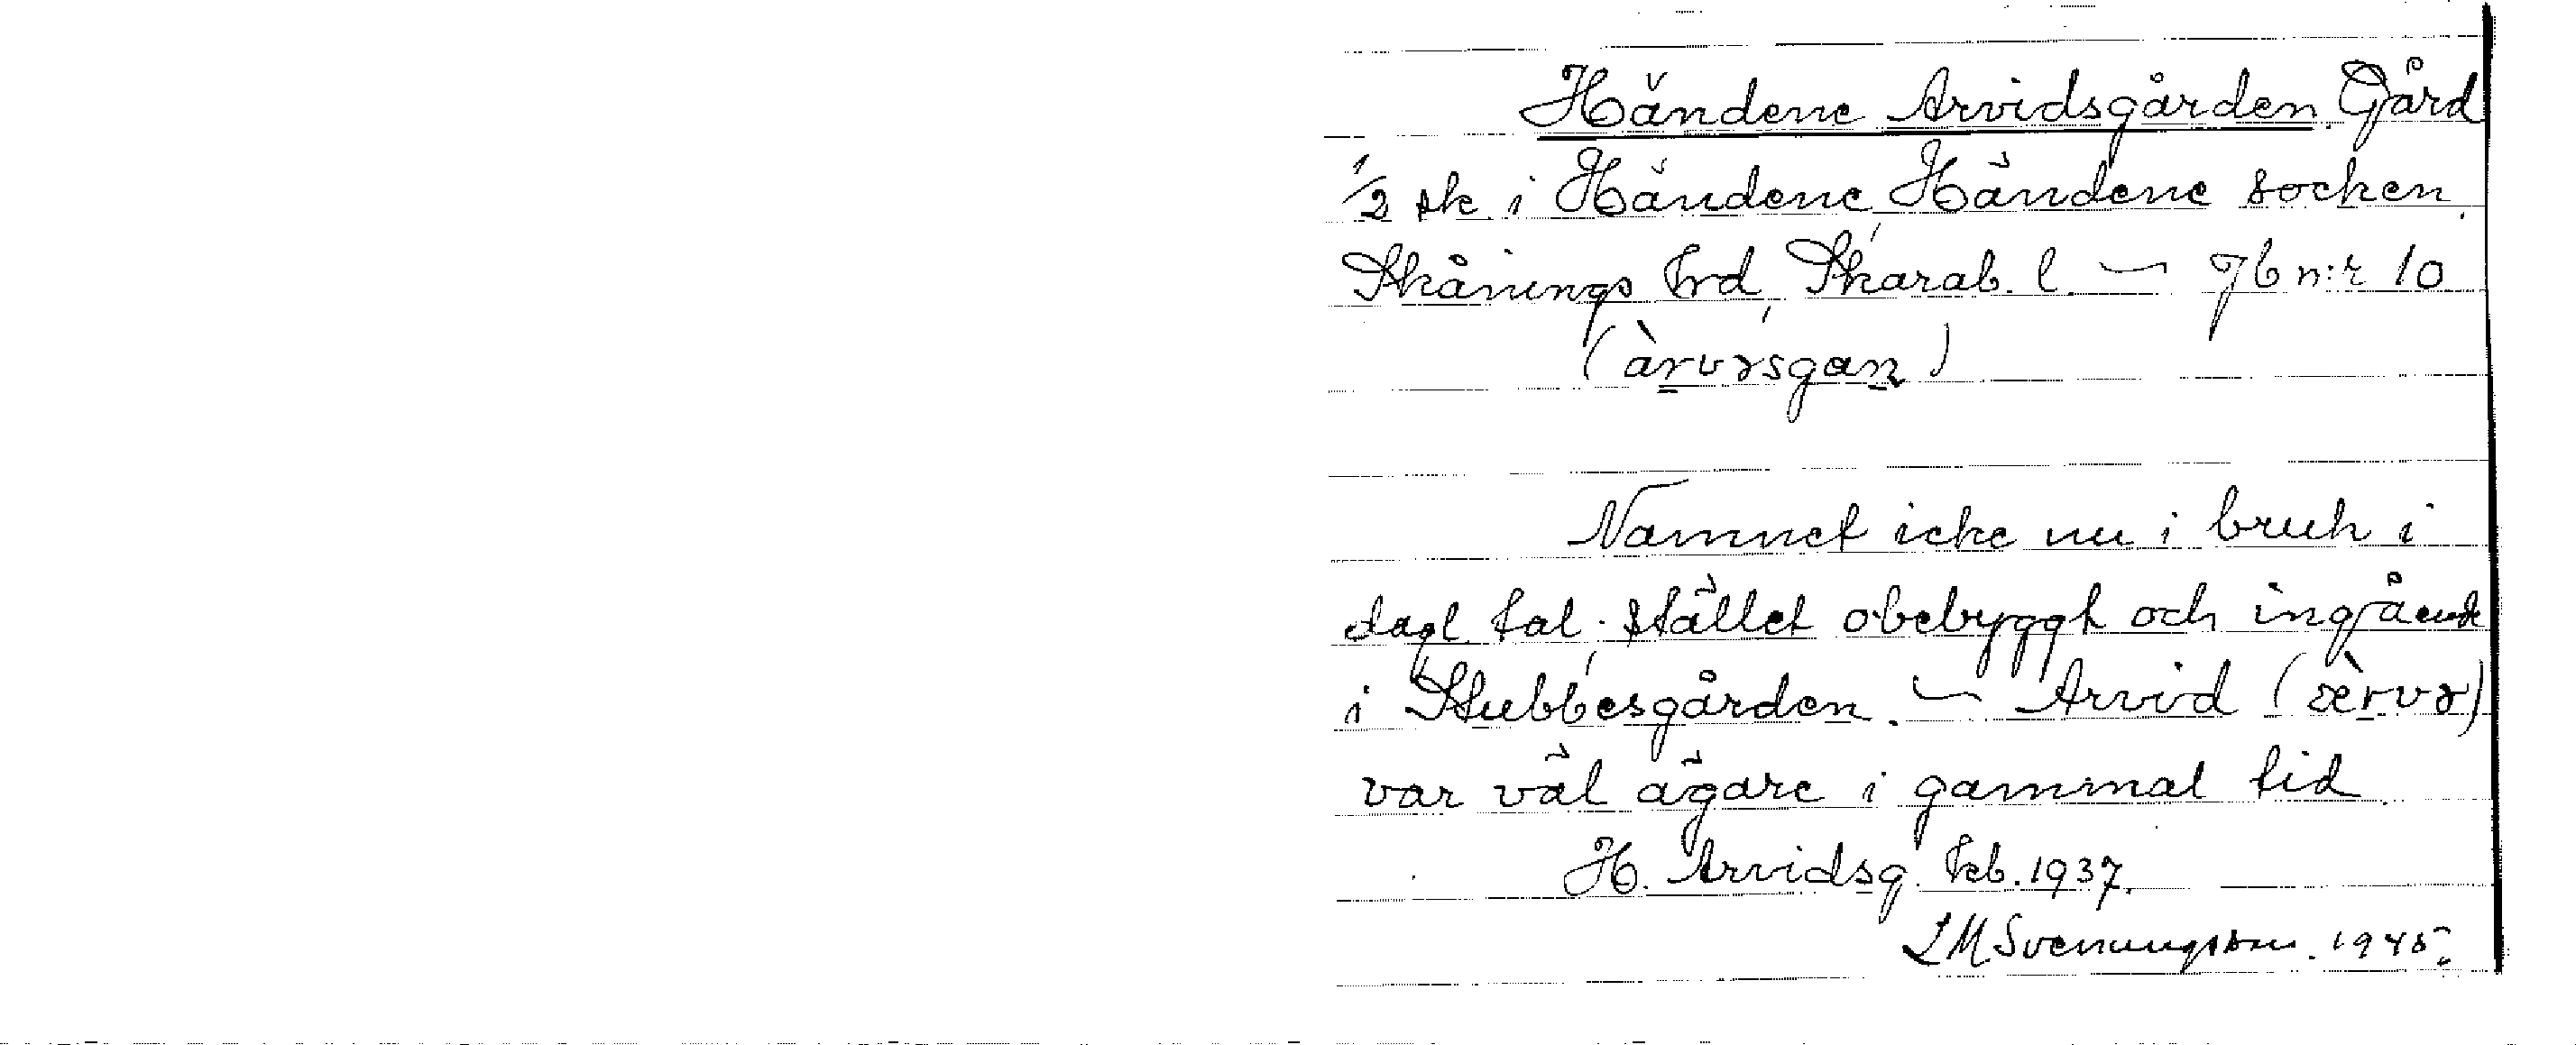 Händene Arvidsgården Gård
1/2 sk i Händene, Händene socken,
Skånings hrd, Skarab. l. — Jb n:r 10
(àrvəsgan)
Namnet icke nu i bruk i
dagl. tal. Stället obebyggt och ingående
i Stubbesgården. — Arvid (ærvə)
var väl ägare i gammal tid.
H. Arvidsg. Fkb. 1937.
L M Svenungsson. 1945.